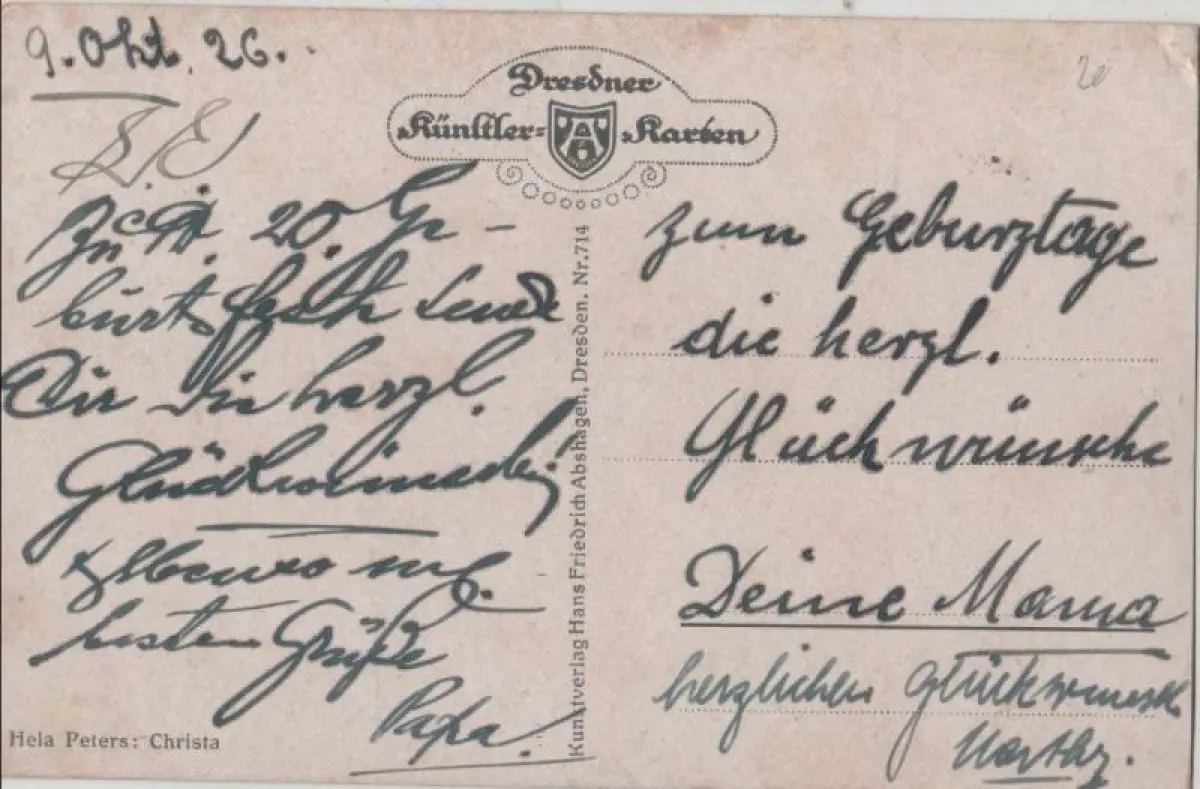 9. Okt. 26.
20
Dresdner
Künstler= Karten
Zu 20. Ge-
burtsfeste sende
Dir die herzl.
Glückwünsche
Ebenso
besten Grüße
Papa.
Hela Peters: Christa
Kunstverlag Hans Friedrich Abshagen, Dresden. Nr. 714
zum Geburztage
die herzl.
Glückwünsche
Deine Mama
herzlichen Glückwunsch